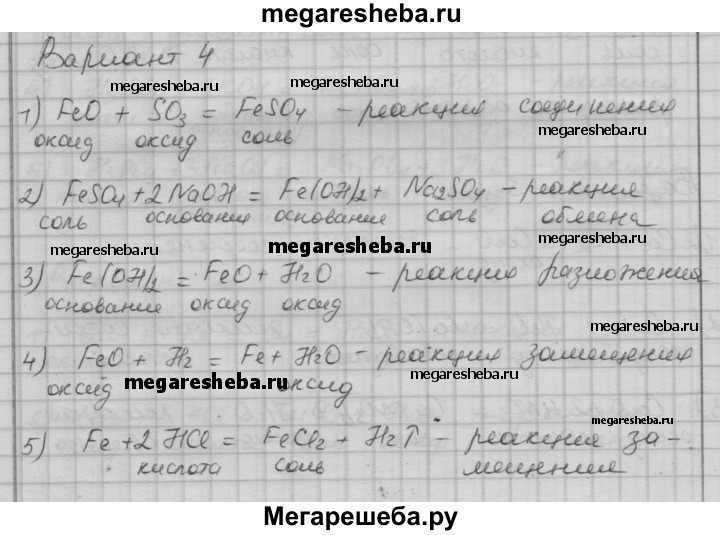 megaresheba.ru
Вариант 4
megaresheba.ru megaresheba.ru
1) FeO + SO3 = FeSO4 – реакция соединения
megaresheba.ru
оксид оксид соль
2) FeSO4 + 2NaOH = Fe(OH)2 + Na2SO4 – реакция
соль основание основание соль обмена
megaresheba.ru megaresheba.ru megaresheba.ru
3) Fe(OH)2 = FeO + H2O – реакция разложения
основание оксид оксид
megaresheba.ru
4) FeO + H2 = Fe + H2O – реакция замещения
оксид megaresheba.ru оксид megaresheba.ru
megaresheba.ru
5) Fe + 2HCl = FeCl2 + H2↑ – реакция за-
кислота соль мещения
Мегарешеба.ру